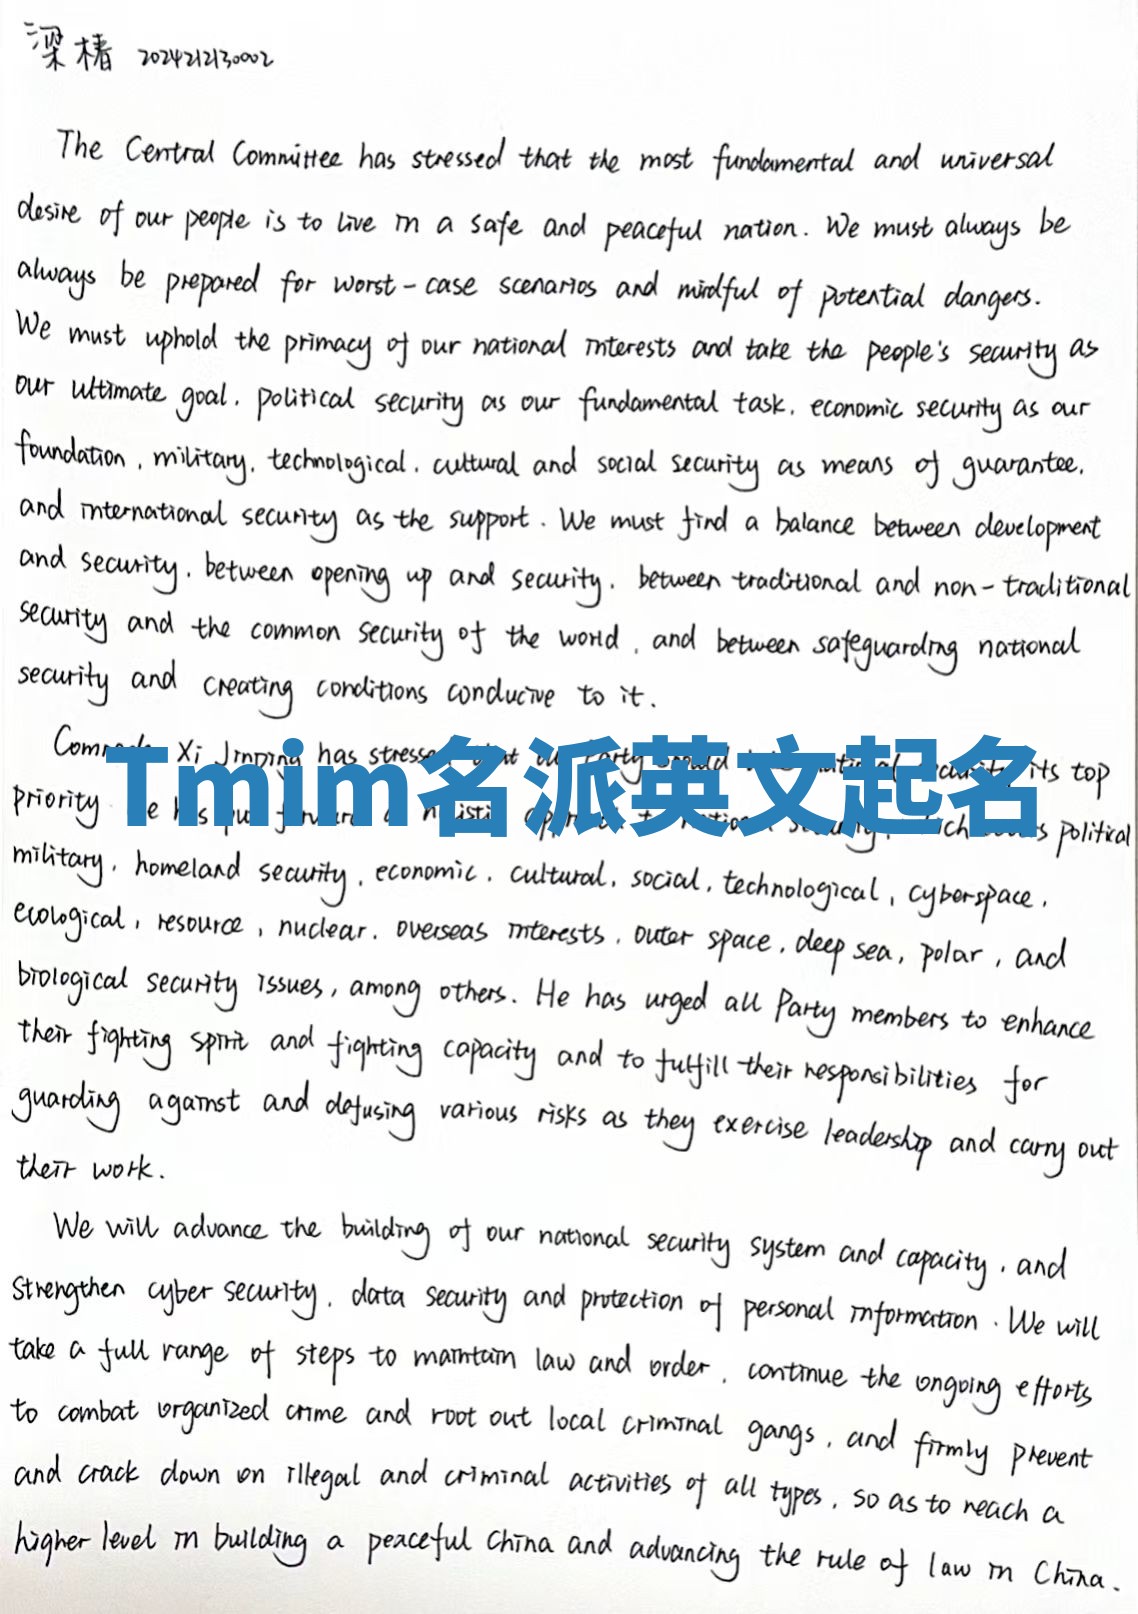 梁椿 2024212130002
The Central Committee has stressed that the most fundamental and universal
desire of our people is to live in a safe and peaceful nation. We must always be
always be prepared for worst-case scenarios and mindful of potential dangers.
We must uphold the primacy of our national interests and take the people's security as
our ultimate goal, political security as our fundamental task, economic security as our
foundation, military, technological, cultural and social security as means of guarantee,
and international security as the support. We must find a balance between development
and security, between opening up and security, between traditional and non-traditional
security and the common security of the world, and between safeguarding national
security and creating conditions conducive to it.
Xi Jinping has its top
Tmim名派英文起名
priority political
military, homeland security, economic, cultural, social, technological, cyberspace,
ecological, resource, nuclear, overseas interests, outer space, deep sea, polar, and
biological security issues, among others. He has urged all Party members to enhance
their fighting spirit and fighting capacity and to fulfill their responsibilities for
guarding against and defusing various risks as they exercise leadership and carry out
their work.
We will advance the building of our national security system and capacity, and
strengthen cyber security, data security and protection of personal information. We will
take a full range of steps to maintain law and order, continue the ongoing efforts
to combat organized crime and root out local criminal gangs, and firmly prevent
and crack down on illegal and criminal activities of all types, so as to reach a
higher level in building a peaceful China and advancing the rule of law in China.